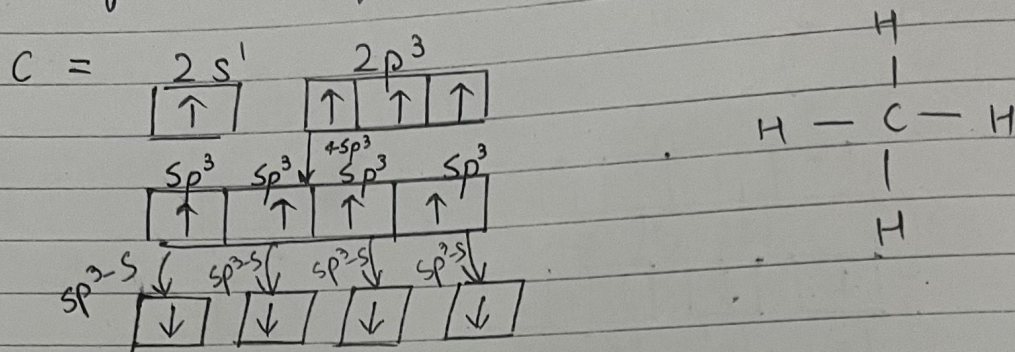 C = 2s¹ 2p³
↑ ↑ ↑ ↑
4sp³
sp³ sp³ sp³ sp³
↑ ↑ ↑ ↑
sp³-s sp³-s sp³-s sp³-s
↓ ↓ ↓ ↓
H
|
H — C — H
|
H